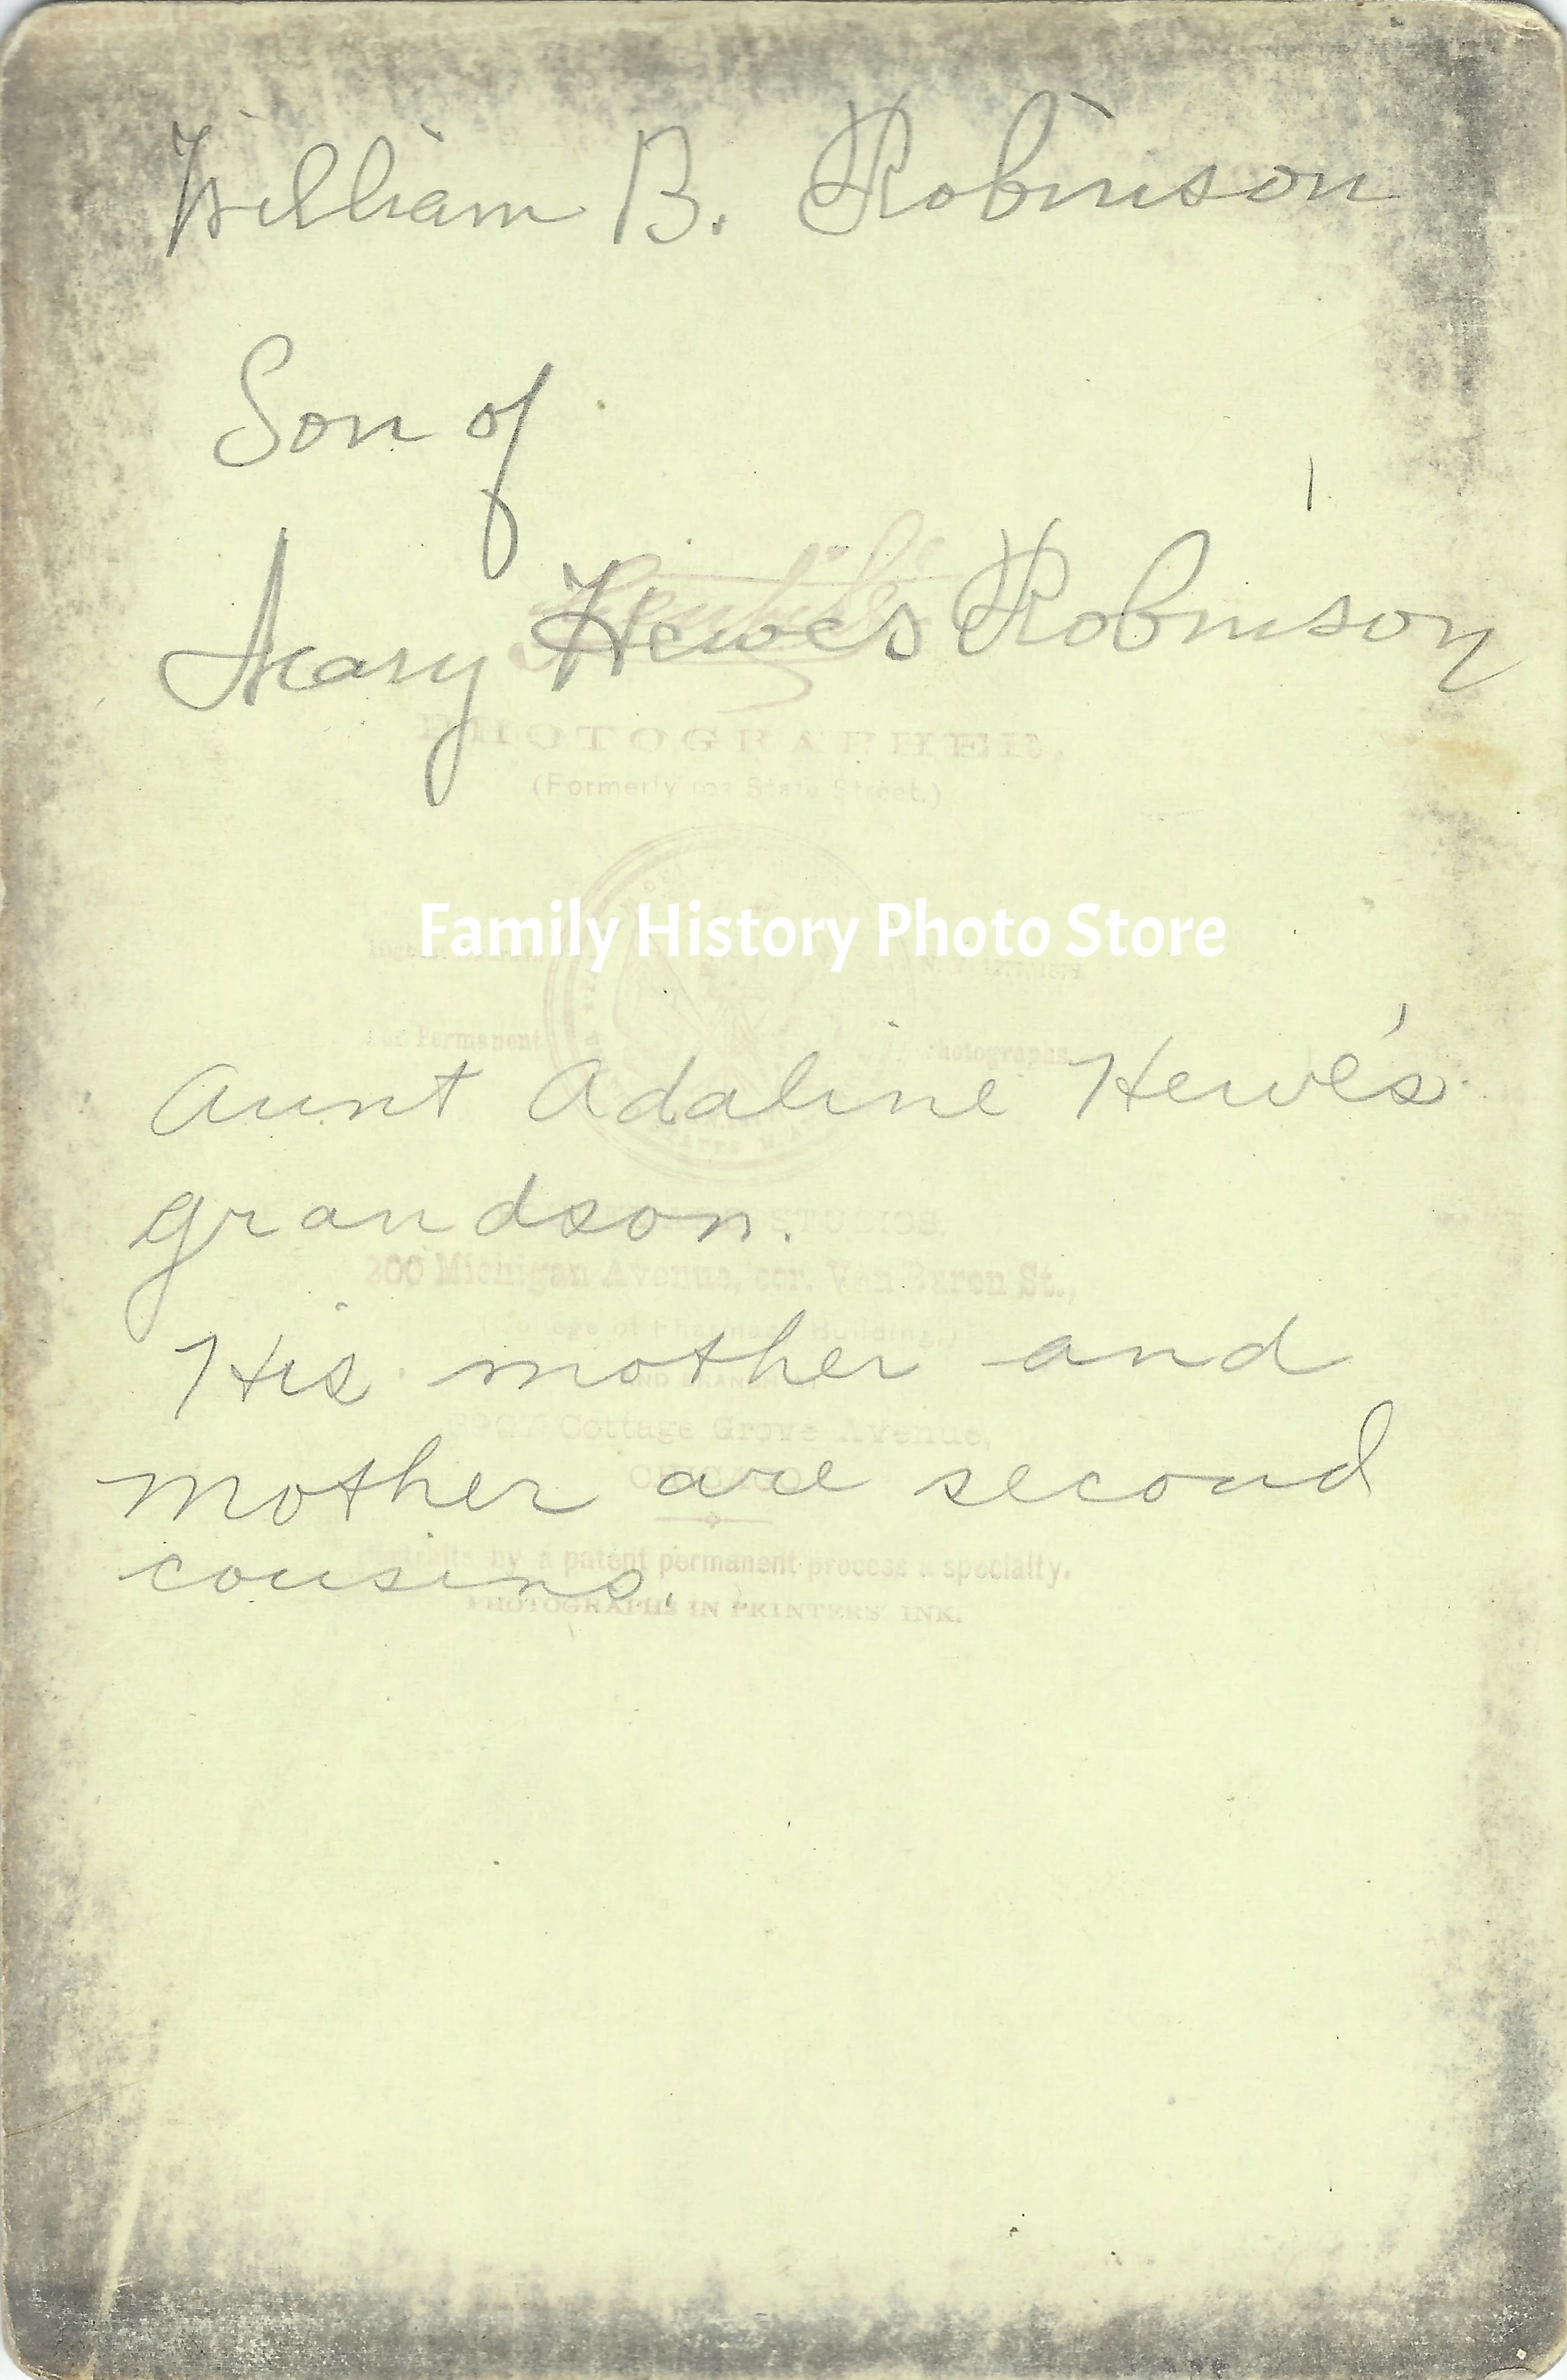 William B. Robinson
Son of
Mary Hewes Robinson
PHOTOGRAPHER.
(Formerly 103 State Street.)
Family History Photo Store
For Permanent Photographs
Aunt Adaline Hewe's
grandson.
STUDIOS.
200 Michigan Avenue, cor. Van Buren St.,
(College of Pharmacy Building,)
His mother and
Cottage Grove Avenue,
CHICAGO
mother are second
cousins.
Portraits by a patent permanent process a specialty.
PHOTOGRAPHS IN PRINTERS' INK.